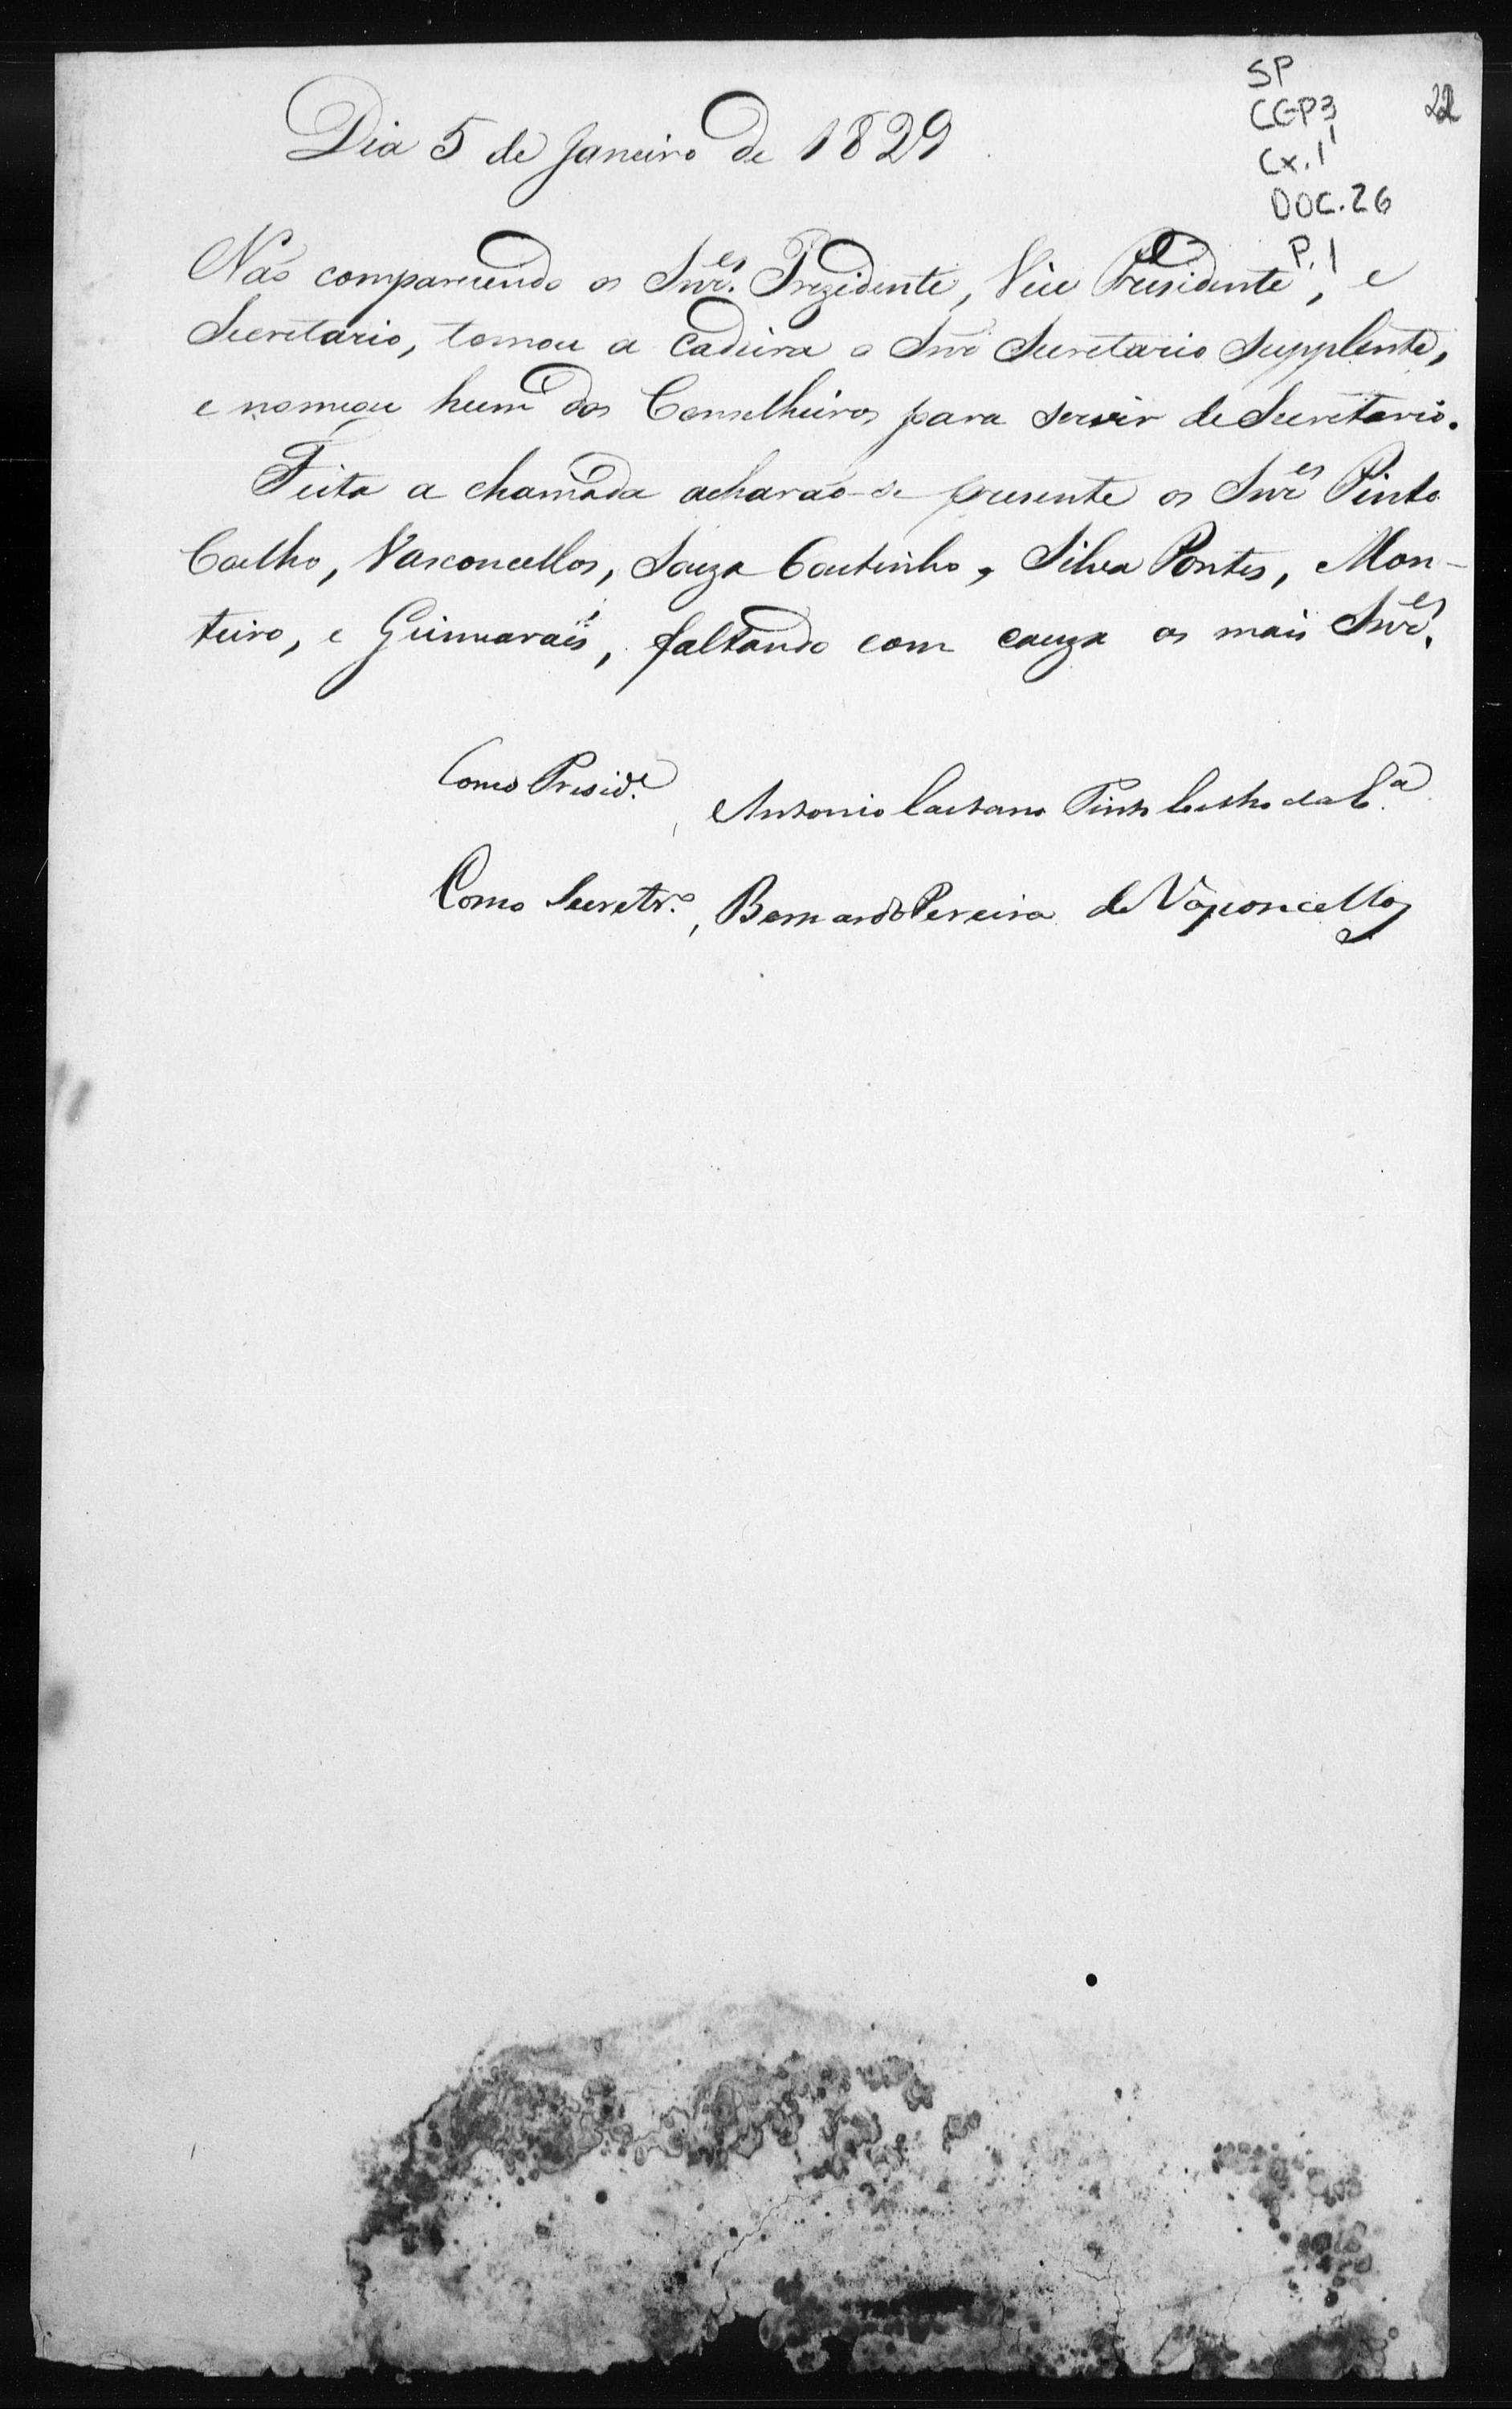 SP
CGP3
Cx. 1
DOC. 26
P. 1
22
Dia 5 de Janeiro de 1829
Não comparecendo os Snr.es Prezidente, Vice Presidente, e
Secretario, tomou a Cadeira o Snr Secretario Supplente,
e nomeou hum dos Conselheiros para servir de Secretario.
Feita a chamada acharão-se presente os Snr.es Pinto
Coelho, Vasconcellos, Souza Coutinho, Silva Pontes, Mon-
teiro, e Guimaraẽs, faltando com cauza os mais Snr.es
Como Presid.e, Antonio Caetano Pinto Coelho da C.a
Como Secretr.o, Bernardo Pereira de Vasconcellos